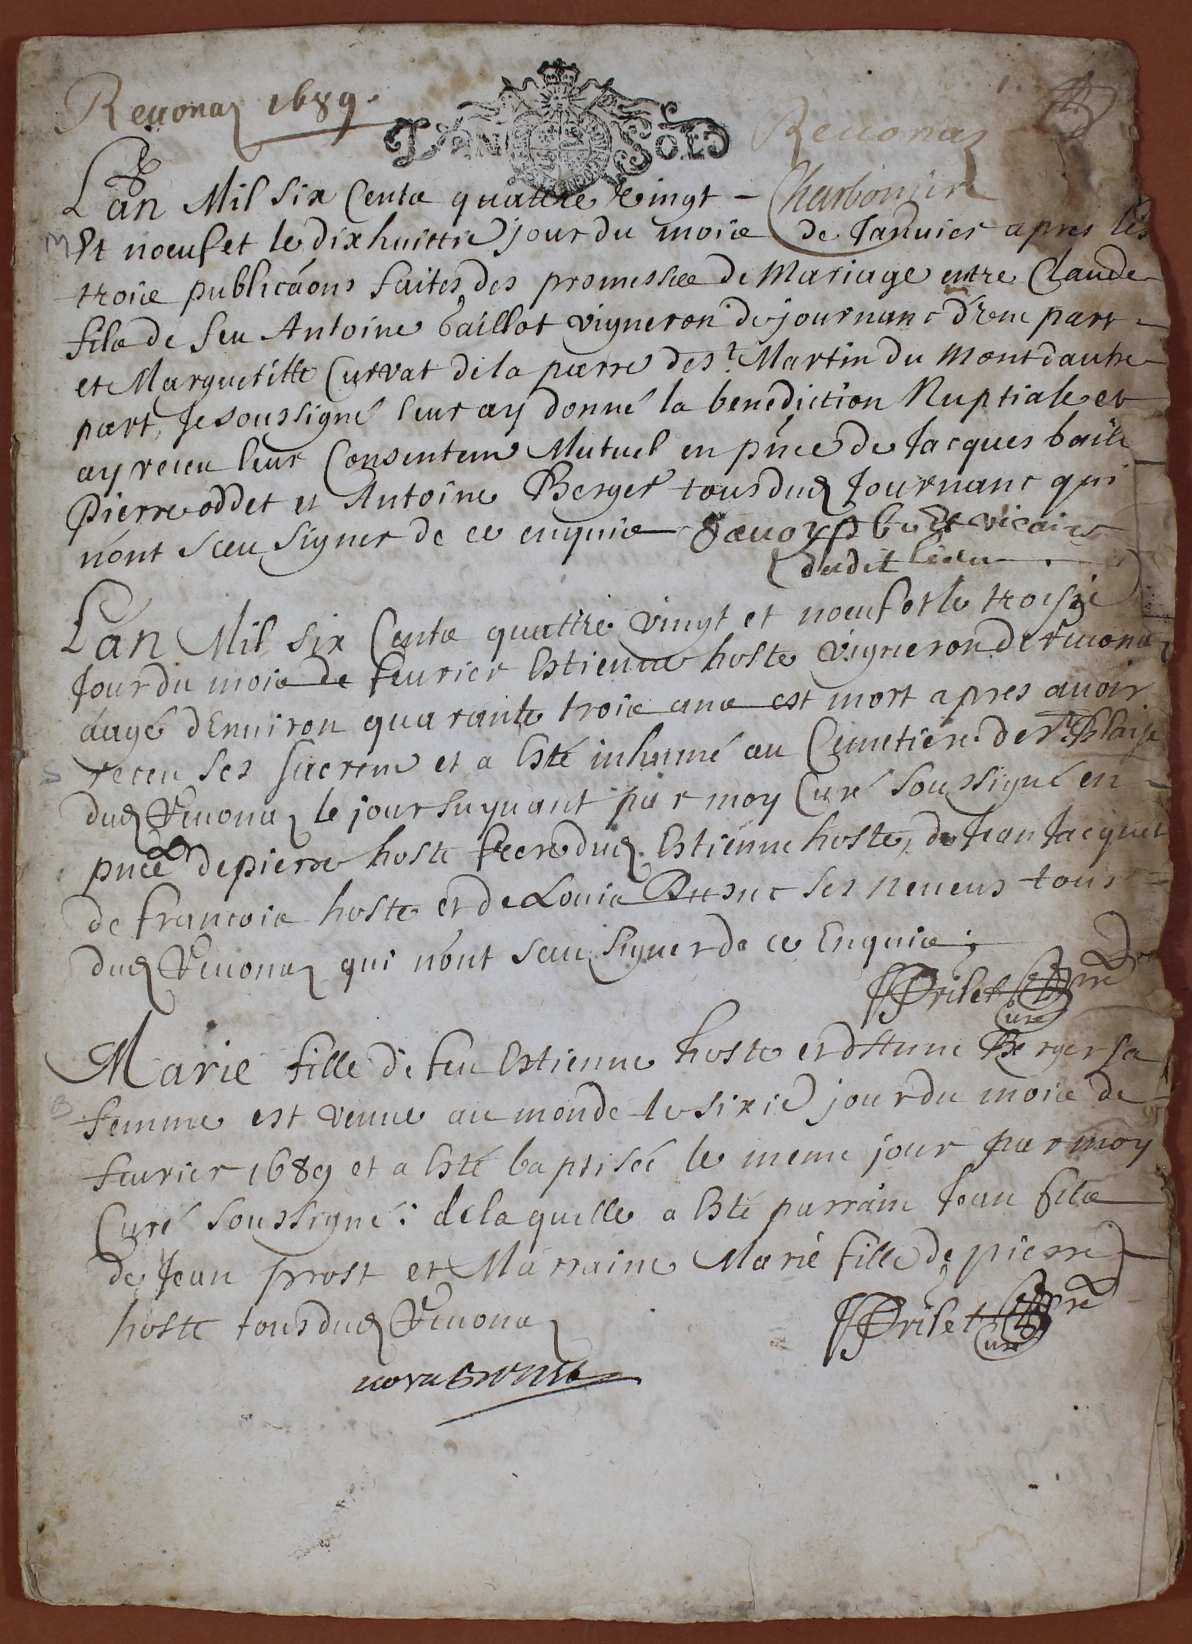 Reuonaz 1689.
UN SOL
Reuonas
Charbonnier
L'an Mil six Cents quattre vingt -
Et noeuf et le dixhuittie jour du mois de Januier apres les
trois publicãons faites des promesses de Mariage entre Claude
fils de feu Antoine baillat vigneron de journanc d'vne part
et Margueritte Curvat de la parre de St Martin du Mont dautre
part, Je soussigné leur ay donné la benediction Nuptiale et
ay receu leur Consentem Mutuel en pñce de Jacques bail
Pierre oddet et Antoine Berger tous dud Journanc qui
n'ont sceu signer de ce enquis pbre et vicaire
dudit lieu
L'an Mil six Cents quattre vingt et noeuf et le troisie
Jour du mois de feurier Estienne hoste vigneron de reuona
aagé d'Enuiron quarante trois ans est mort apres auoir
receu ses sacrem et a Esté inhumé au Cemetiere de St Blaise
dud Reuonaz le jour suyuant par moy Curé soussigné en
pnce de pierre hoste frere dud Estienne hoste, de Jean Jacquet
de francois hoste et de Louis ses neueus tous
dud Reuonaz qui n'ont sceu signer de ce Enquis
Prilet pre
Curé
Marie fille de feu Estienne hoste et d'Stienne Berger sa
femme est venue au monde le sixie jour du mois de
feurier 1689 et a Esté baptisée le meme jour par moy
Curé soussigné: de laquelle a Esté parrain Jean fils
de Jean prost et Marraine Marie fille de pierre
hoste tous dud Reuonaz
Prilet pre
Curé